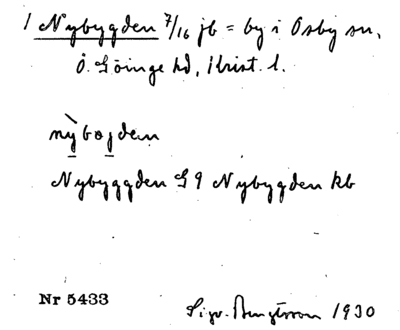 1 Nybygden 7/16 jb = by i Osby sn,
Ö. Göinge hd, Krist. l.
nỳbojden
Nybyggden G 9 Nybygden kb
Nr 5433
Sigv. Bengtsson 1930